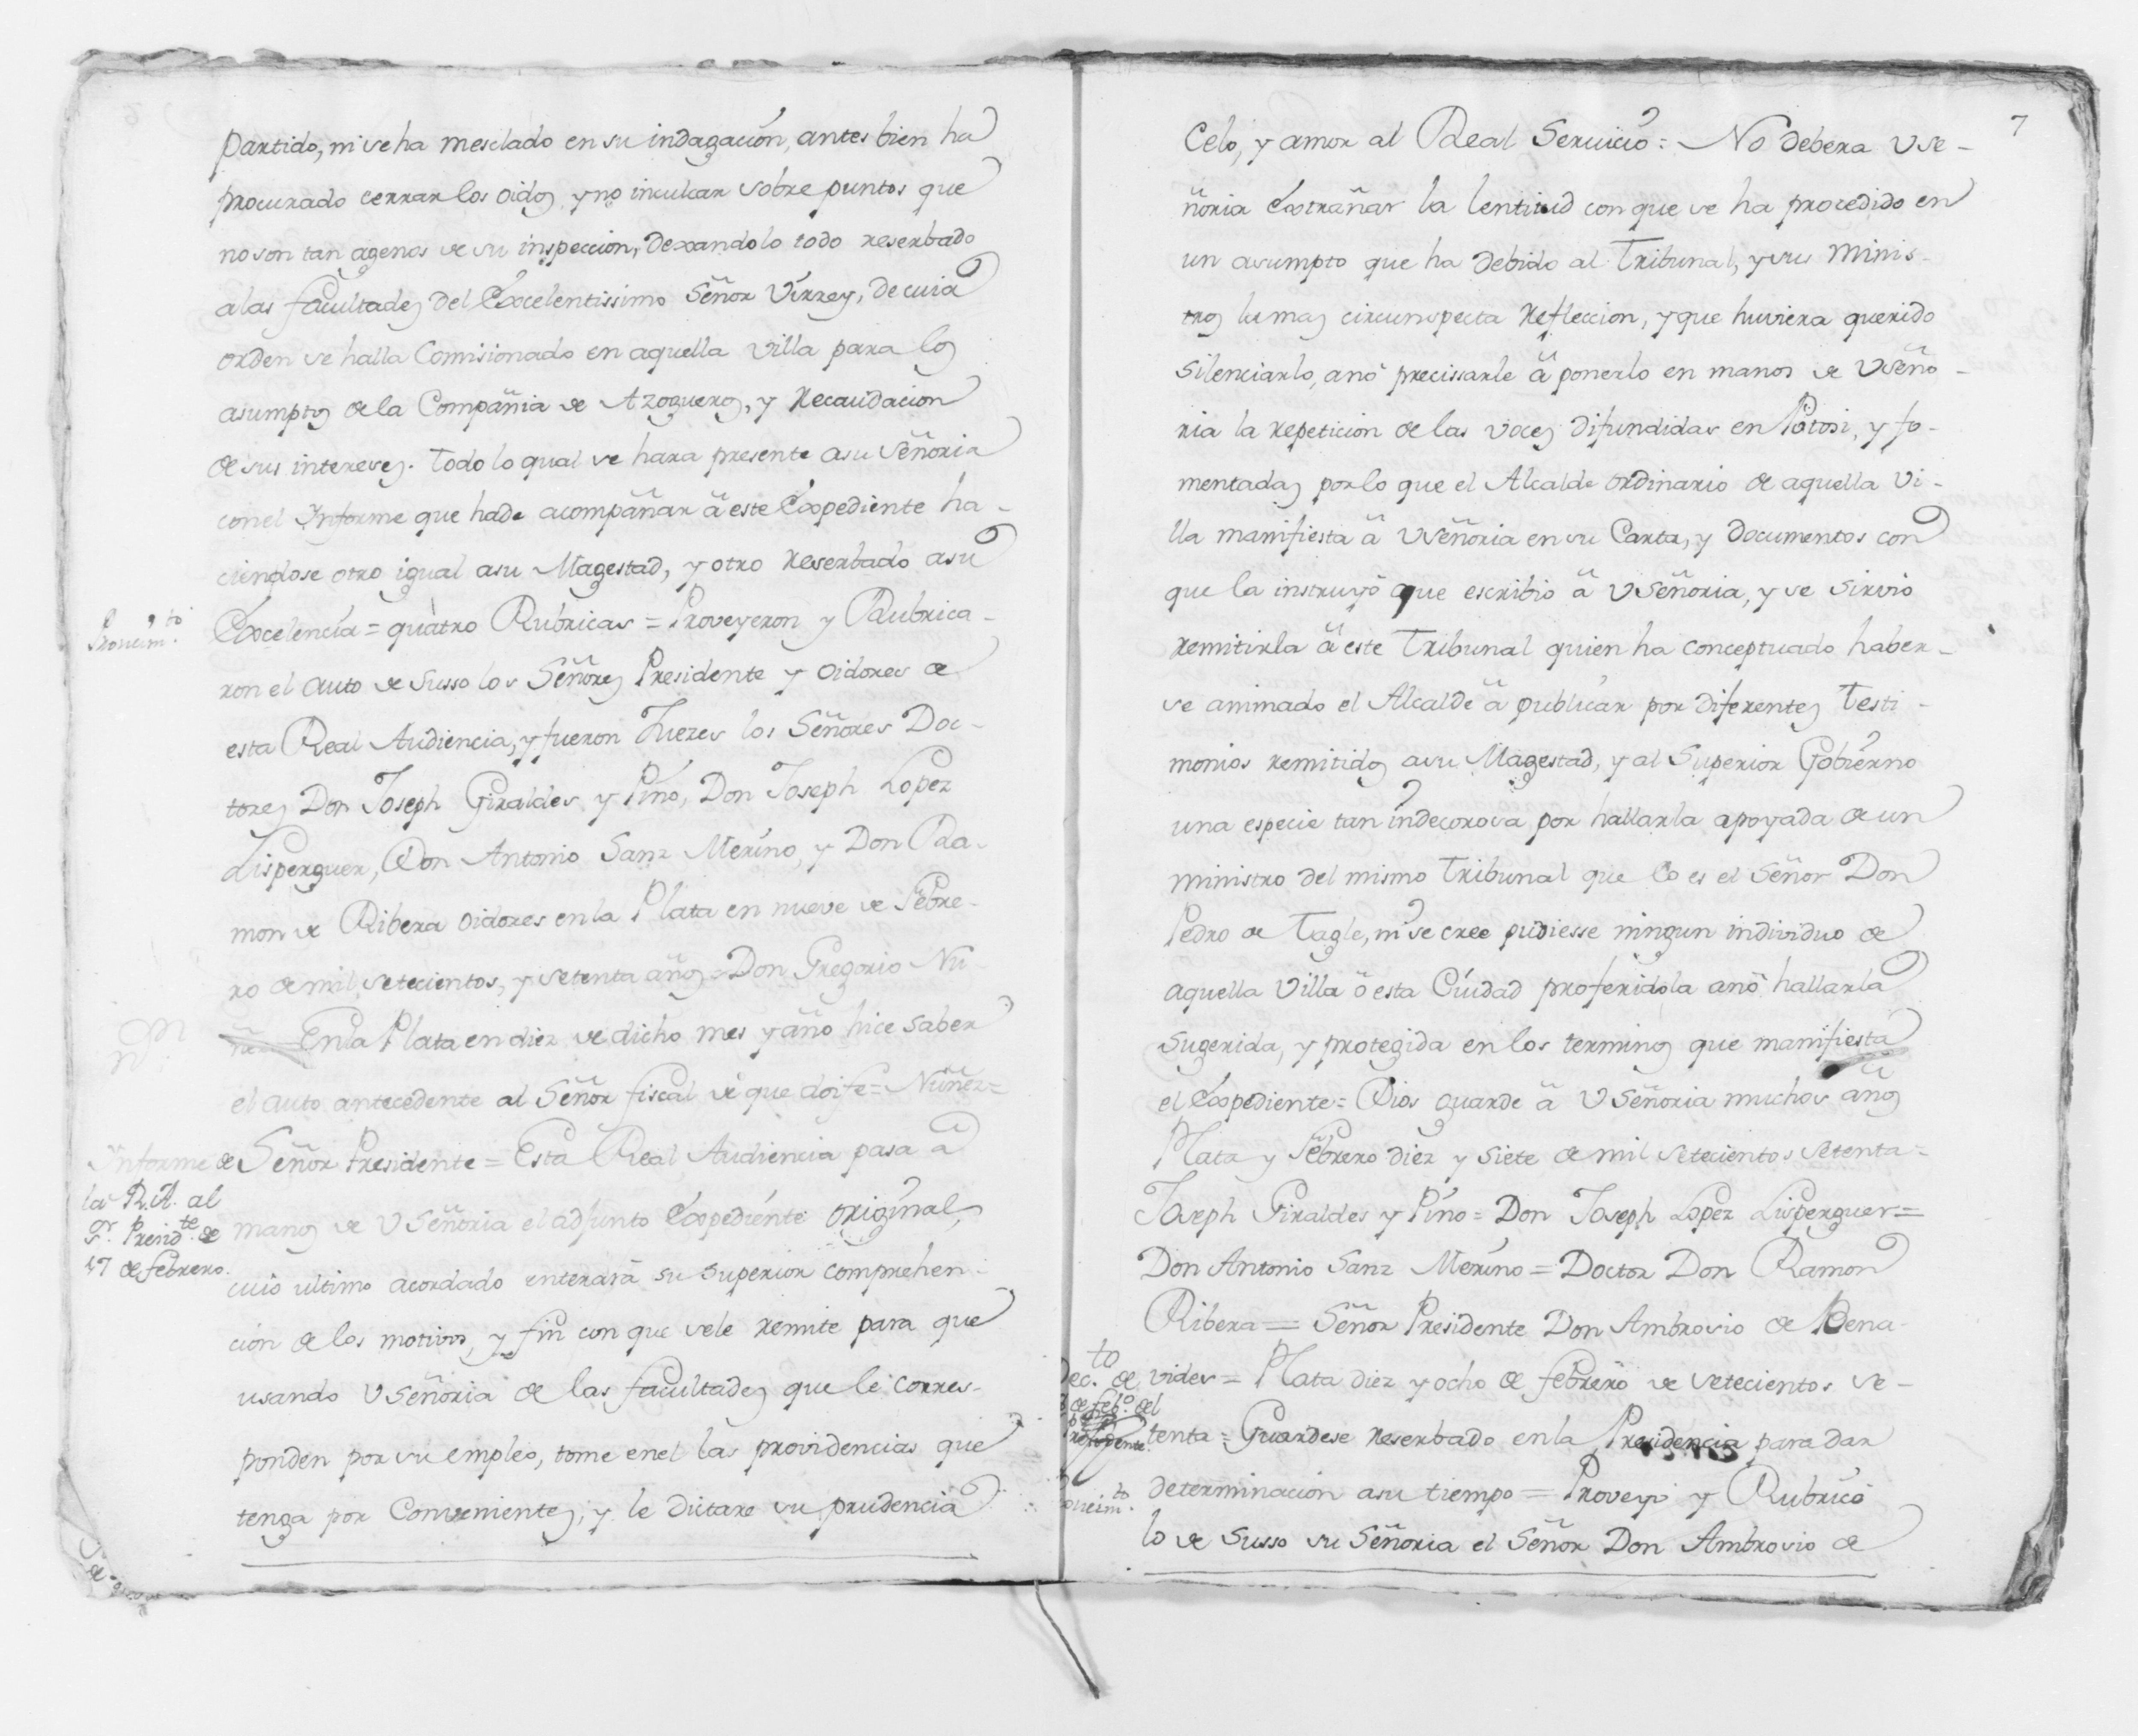 partido, ni se ha mesclado en su indagacion, antes bien ha
procurado cerrar los oidos y no inculcar sobre puntos que
no son tan agenos de su inspeccion, dexandolo todo reserbado
a las facultades del Excelentissimo Señor Virrey, de cuia
orden se halla Comisionado en aquella Villa para los
asumptos de la Compañia de Azogueros, y Recaudacion
de sus intereses. Todo lo qual se hara presente a su Señoria
con el Informe que hade acompañar â este Expediente ha-
ciendose otro igual asu Magestad, y otro Reserbado asu
Proveim.to
Excelencia = quatro Rubricas = Proveyeron y Rubrica-
ron el auto de Susso los Señores Presidente y Oidores de
esta Real Audiencia, y fueron Juezes los Señores Doc-
tores Don Joseph Giraldes y Pino, Don Joseph Lopez
Lisperguer, Don Antonio Sanz Merino, y Don Ra-
mon de Ribera oidores en la Plata en nueve de Febre-
ro de mil setecientos, y setenta años = Don Gregorio Nu
ñez = En la Plata en diez de dicho mes y año hice saber
el auto antecedente al Señor fiscal de que doi fe = Nuñez =
Informe de
la R. A. al
S.or Presid.te de
17 de febrero.
Señor Presidente = Esta Real Audiencia pasa â
manos de V Señoria el adjunto Expediente original,
cuio ultimo acordado enterará su superior comprehen-
cion de los motivos, y fin con que se le remite para que
usando V Señoria de las facultades que le corres-
ponden por su empleo, tome en el las providencias que
tenga por Convenientes, y le dictare su prudencia
7
Celo, y amor al Real Servicio = No debera V Se-
ñoria Extrañar la lentitud con que se ha procedido en
un asumpto que ha debido al Tribunal, y sus Minis-
tros la mas circunspecta Refleccion, y que huviera querido
silenciarlo, anó precissarle â ponerlo en manos de V Seño-
ria la repeticion de las voces difundidas en Potosi, y fo-
mentadas por lo que el Alcalde ordinario de aquella Vi-
lla manifiesta â V Señoria en su Carta, y Documentos con
que la instruyó que escribio â V Señoria, y se sirvió
remitirla â este Tribunal quien ha conceptuado haber-
se animado el Alcalde â publicar por diferentes Testi-
monios remitidos asu Magestad, y al Superior Gobierno
una especie tan indecorosa por hallarla apoyada de un
ministro del mismo Tribunal que lo es el Señor Don
Pedro de Tagle, ni se cree pudiesse ningun individuo de
aquella Villa ô esta Ciudad proferidola anô hallarla
sugerida, y protegida en los terminos que manifiesta
el Expediente = Dios guarde â V Señoria muchos años
Plata y Febrero diez y siete de mil setecientos setenta =
Joseph Giraldes y Pino = Don Joseph Lopez Lisperguer =
Don Antonio Sanz Merino = Doctor Don Ramon
Ribera = Señor Presidente Don Ambrosio de Bena-
vides = Plata diez y ocho de febrero de setecientos se-
tenta = Guardese reserbado en la Presidencia para dar
determinacion asu tiempo = Proveyó y Rubricó
lo de Susso su Señoria el Señor Don Ambrosio de